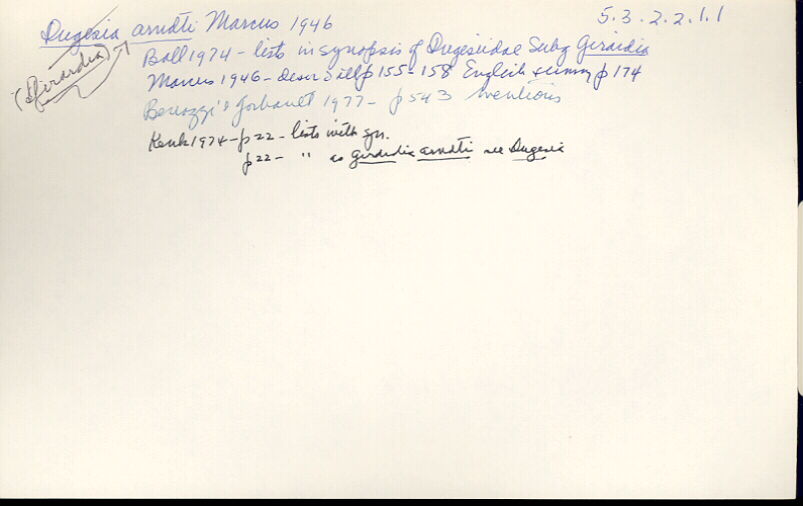 5.3.2.2.1.1
Dugesia arndti Marcus 1946
(Girardia)
Ball 1974 - lists in synopsis of Dugesiidae Subg Girardia
Marcus 1946 - descr & ill p 155-158 English summ p 174
Benazzi & Gourbault 1977 - p 543 mentions
Kenk 1974 - p 22 - lists with syn.
p 22 - " as Girardia arndti see Dugesia